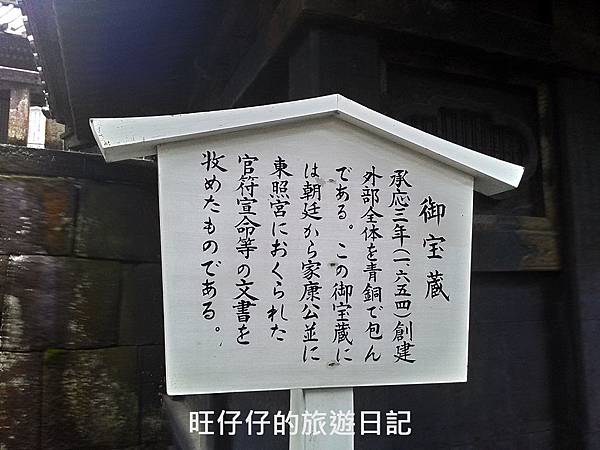 御宝蔵
承応三年(一六五四)創建
外部全体を青銅で包ん
である。この御宝蔵に
は朝廷から家康公並に
東照宮におくられた
官符宣命等の文書を
牧めたものである。
旺仔仔的旅遊日記